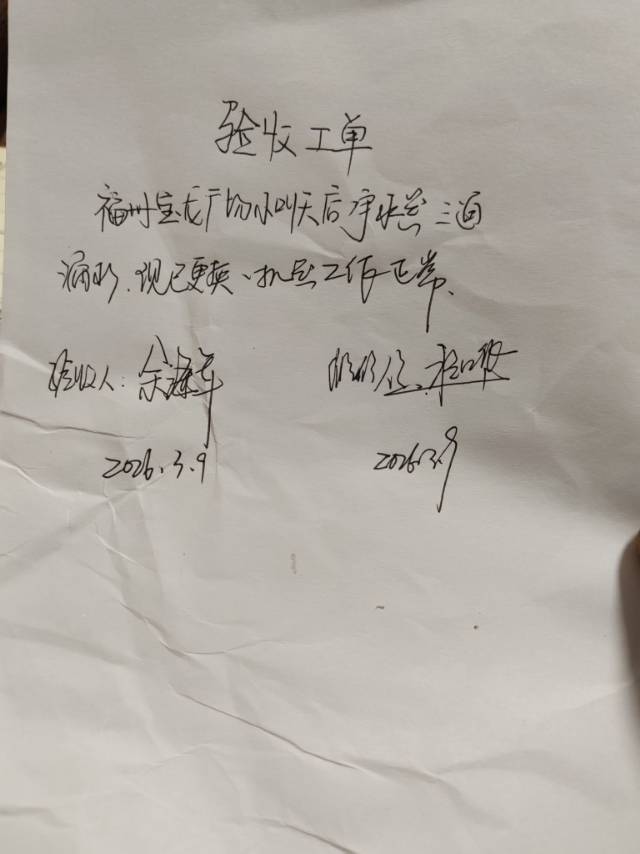 验收工单
福州宝龙广场小叫天后净水器三通
漏水.现已更换、机器工作正常.
验收人:余海军
2026.3.9
2026.3.9